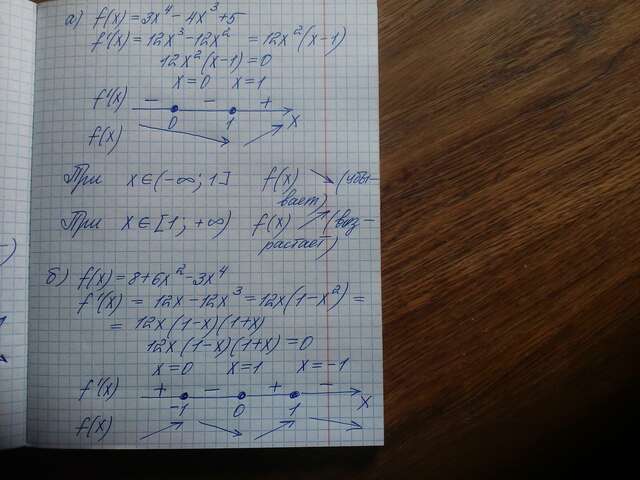 а) f(x)=3x⁴-4x³+5
f'(x)=12x³-12x² =12x²(x-1)
12x²(x-1)=0
x=0 x=1
f'(x) - - +
0 1 x
f(x)
При x∈(-∞; 1] f(x) ↘ (убы-
вает)
При x∈[1; +∞) f(x) ↗ (воз-
растает)
б) f(x)=8+6x²-3x⁴
f'(x) = 12x-12x³=12x(1-x²)=
= 12x(1-x)(1+x)
12x(1-x)(1+x)=0
x=0 x=1 x=-1
f'(x) + - + -
-1 0 1 x
f(x)